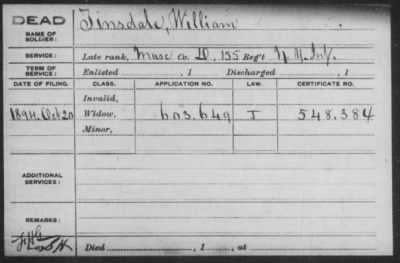 DEAD
NAME OF SOLDIER:
Tinsdale, William
SERVICE:
Late rank, Musc Co. D, 155 Reg't N.Y. Inf.
TERM OF SERVICE:
Enlisted , 1 Discharged , 1
DATE OF FILING. CLASS. APPLICATION NO. LAW. CERTIFICATE NO.
Invalid,
1894. Oct 20 Widow, 603.649 I 548.384
Minor,
ADDITIONAL SERVICES:
REMARKS:
Died , 1 , at